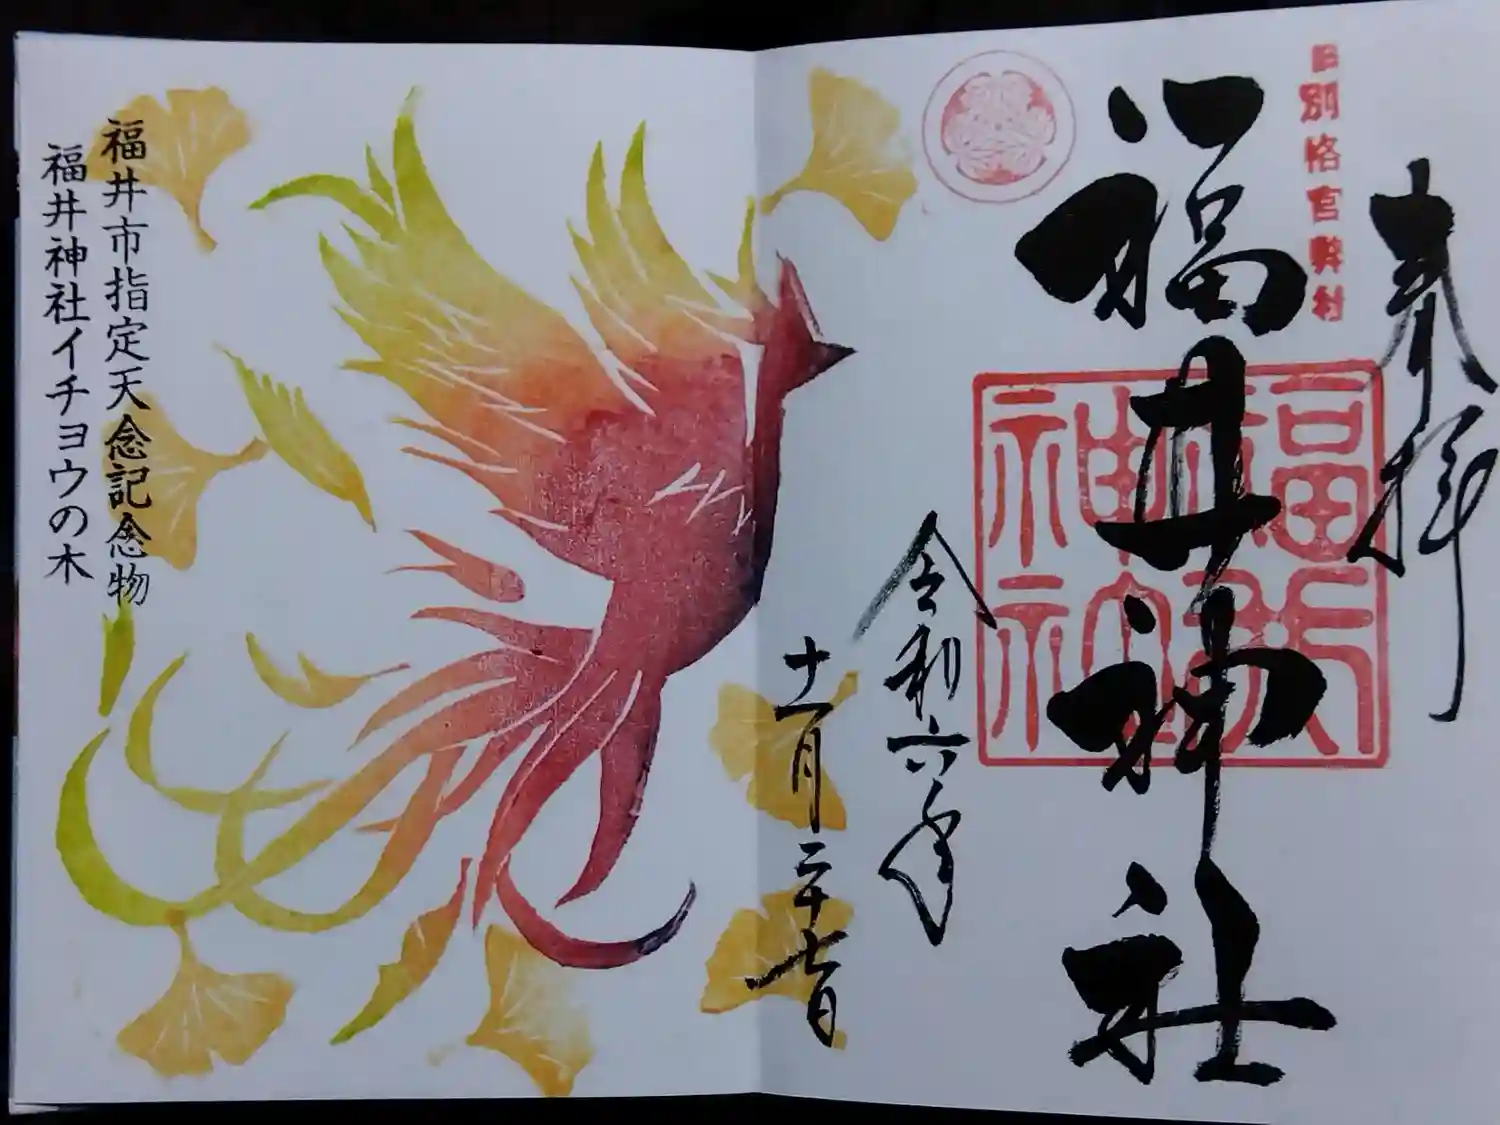 奉拝
旧別格官幣社
福井神社
福井神社
令和六年
十一月二十七日
福井市指定天然記念物
福井神社イチョウの木